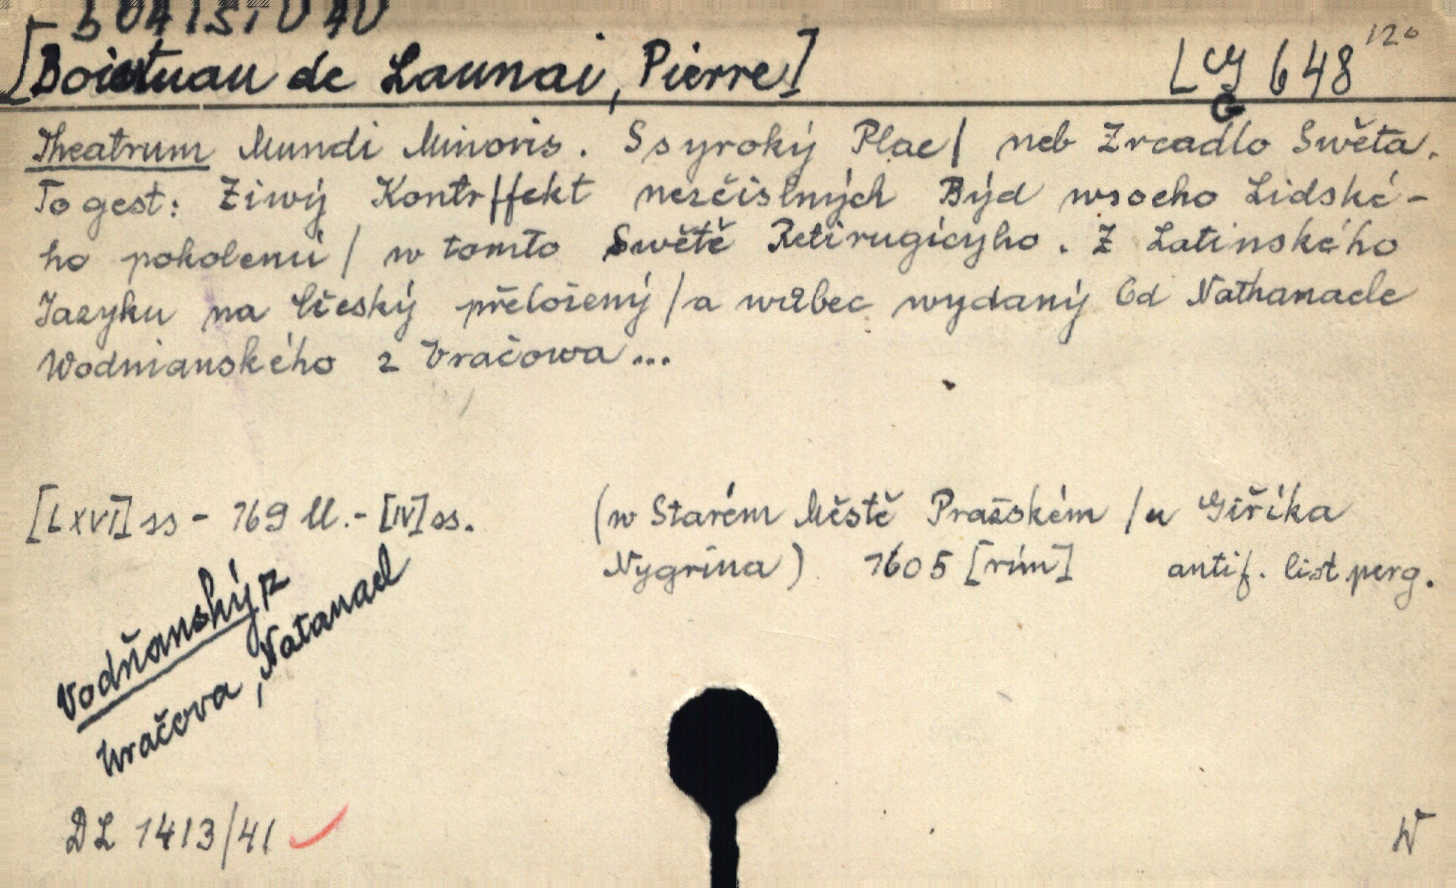 BOAISTUAU
[Boistuau de Launai, Pierre]
LCY 648 12°
G
Theatrum Mundi Minoris. Ssyroký Plac/ neb Zrcadlo Swěta.
To gest: Ziwý Kontrffekt nesčislných Býd wsseho Lidské-
ho pokolení / w tomto Swětě Retirugícyho. Z Latinského
Jazyku na Cžeský přeložený / a wůbec wydaný Od Nathanaele
Wodnianského z Vračowa...
[LXVI] ss - 169 ll. - [IV] ss.
(w Starém Městě Pražském / u Giříka
Nygrina) 1605 [rím] antif. list perg.
Vodňanský z
Uračova, Natanael
DL 1413/41
W